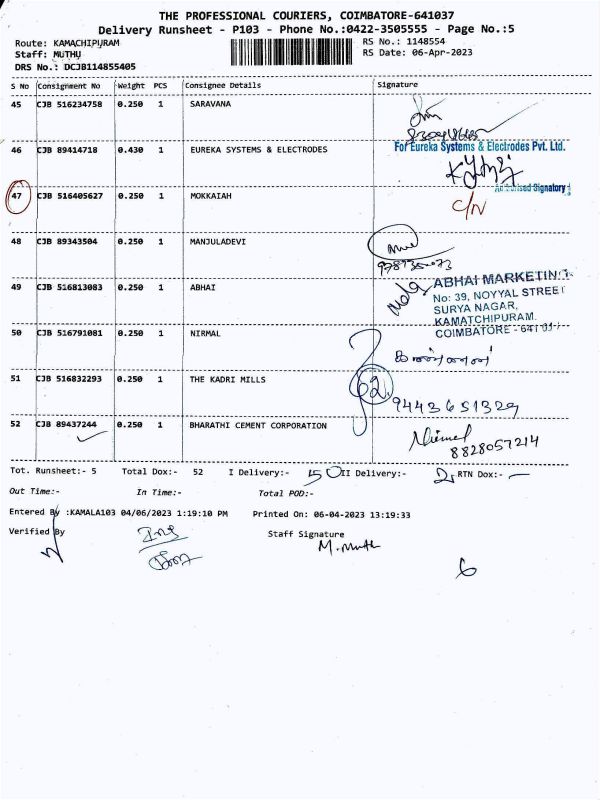 THE PROFESSIONAL COURIERS, COIMBATORE-641037
Delivery Runsheet - P103 - Phone No.:0422-3505555 - Page No.:5
Route: KAMACHIPURAM RS No.: 1148554
Staff: MUTHU RS Date: 06-Apr-2023
DRS No.: DCJB114855405
S No Consignment No Weight PCS Consignee Details Signature
45 CJB 516234758 0.250 1 SARAVANA
46 CJB 89414718 0.430 1 EUREKA SYSTEMS & ELECTRODES For Eureka Systems & Electrodes Pvt. Ltd.
Authorised Signatory
47 CJB 516405627 0.250 1 MOKKAIAH C/N
48 CJB 89343504 0.250 1 MANJULADEVI
49 CJB 516813083 0.250 1 ABHAI ABHAI MARKETING
No: 39, NOYYAL STREET
SURYA NAGAR,
KAMATCHIPURAM.
COIMBATORE - 641
50 CJB 516791081 0.250 1 NIRMAL
51 CJB 516832293 0.250 1 THE KADRI MILLS 62
9443651329
52 CJB 89437244 0.250 1 BHARATHI CEMENT CORPORATION Nirmal
8828057214
Tot. Runsheet:- 5 Total Dox:- 52 I Delivery:- 50 II Delivery:- 2 RTN Dox:- -
Out Time:- In Time:- Total POD:-
Entered By :KAMALA103 04/06/2023 1:19:10 PM Printed On: 06-04-2023 13:19:33
Verified By Staff Signature
M. Muth
6